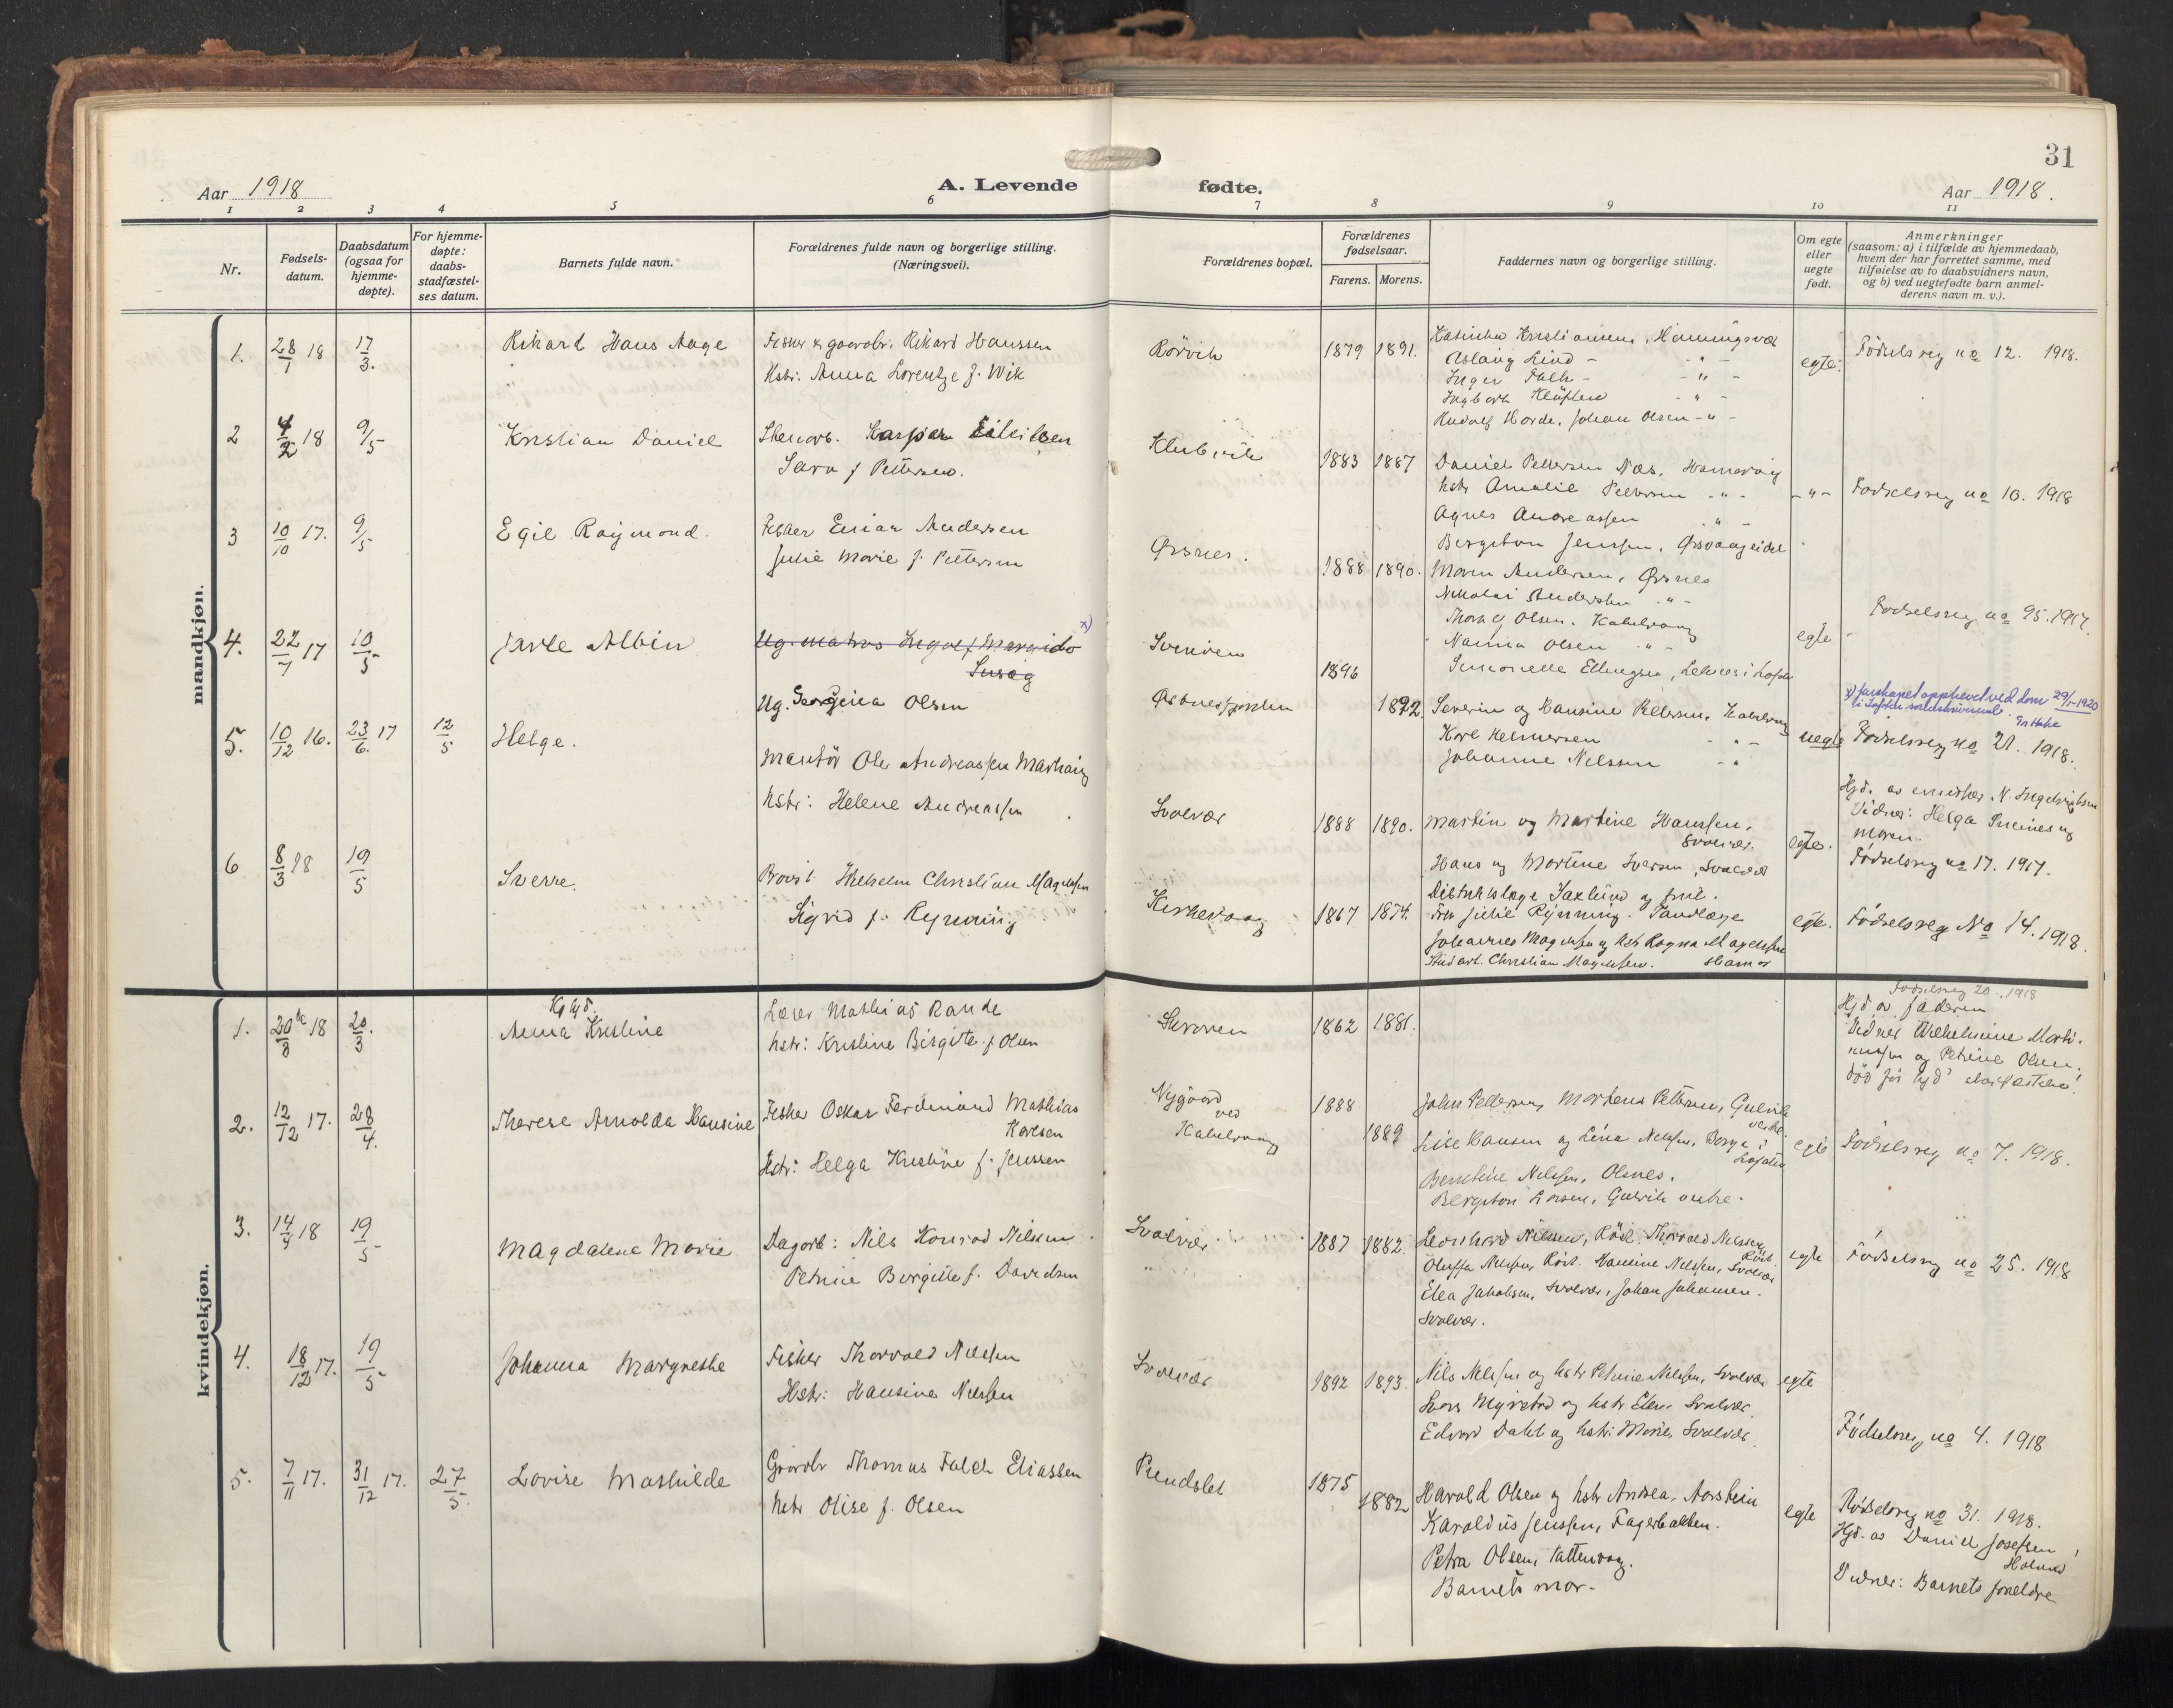 31
Aar 1918
A. Levende fødte.
Aar 1918.
1 2 3 4 5 6 7 8 9 10 11
Nr.
Fødsels-
datum.
Daabsdatum
(ogsaa for
hjemme-
døpte).
For hjemme-
døpte:
daabs-
stadfæstel-
ses datum.
Barnets fulde navn.
Forældrenes fulde navn og borgerlige stilling.
(Næringsvei).
Forældrenes bopæl.
Forældrenes
fødselsaar.
Farens. Morens.
Faddernes navn og borgerlige stilling.
Om egte
eller
uegte
født.
Anmerkninger
(saasom: a) i tilfælde av hjemmedaab,
hvem der har forrettet samme, med
tilføielse av to daabsvidners navn,
og b) ved uegtefødte barn anmel-
derens navn m. v.).
mandkjøn.
1. 28/1 18 17/3. Rikard Hans Aage
Fisker & gaardbr. Rikard Hanssen
Hstr. Anna Lorentze f. Wik
Rørvik 1879 1891.
Katinka Kristiansen, Henningsvær
Aslaug Lind - " -
Inger Falk - " -
Ingborh - " -
Rudolf Horde, Johan Olsen - " -
egte. Fødselsreg no 12. 1918.
2 4/2 18 9/5 Kristian Daniel
Kaspar
Sara f Pettersen.
Klubvik 1883 1887
Daniel Pettersen Næs,
hstr Amalie Pettersen - " -
Agnes Andreassen " -
Bergiton Jenssen, Ørsvaageidet
- " - Fødselsreg no 10. 1918
3 10/10 17. 9/5 Egil Raymond.
Fisker Einar Andersen
Julie Marie f. Pettersen
Ørsnes. 1888 1890.
Maren Andersen, Ørsnes
Nikolai Andersen " -
Thora Olsen. Kabelvaag
Nanna Olsen " -
Simonelle Ellingsen,
egte - Fødselsreg no 95. 1917.
4. 22/7 17 10/5 Jarle Albin
Ug. matros Ingolf x)
Ug. Georgina Olsen
Svinøen 1896
Østnesfjorden 1892.
Severin og Hansine Pettersen, Kabelvaag
Karl Helmersen - " -
Johanne Nilssen - "
uegte
x) farskapet opphevet ved dom 29/1-1920
Fødselsreg no 21. 1918.
5. 10/12 16. 23/6. 17 12/5 Helge.
Montør Ole Andreassen
hstr: Helene Andreassen
Svolvær 1888 1890.
Martin og Martine Hanssen,
Svolvær.
Hans og Martine Iversen, Svolvær
egte.
Hjd. av N. Ingebrigtsen
Vidner: Helga og
moren.
Fødselsreg no 17. 1917.
6 8/3 18 19/5 Sverre.
Provst Wilhelm Christian Magelssen
Sigrid f. Rynning
Kirkevaag 1867 1874.
Distriktslæge Saxlund og frue.
Fru Julie Rynning. Tandlæge
Johannes Magelssen og hstr Ragna Magelssen
Stud art. Christian Magelssen. Hamar
egte. Fødselsreg No 14. 1918.
kvindekjøn.
1. 20/3 18 20/3. Hjd.
Anna Kristine
Lærer Mathias Rande
hstr: Kristine Birgitte f Olsen
Skroven 1862 1881.
Fødselsreg 20. 1918
Hjd av faderen
Vidner Wilhelmine Marti-
nussen og Petrine Olsen.
død før
2. 12/12 17. 28/4. Therese Arnolda Hansine
Fisker Oskar Ferdinand Mathias
Karlsen
Hstr: Helga Kristine f. Jenssen
Nygaard
ved
Kabelvaag
1888
1889
John Pettersen, Mortena Pettersen, Gulvik
Lise Hansen og Lina Nilssen, Borge i
Lofoten
Berntine Nilssen, Olsnes.
Bergiton Larsen, Gulvik
egte Fødselsreg no 7. 1918.
3. 14/4 18 19/5 Magdalena Marie
Dagarb: Nils Konrad Nilssen
Petrine Birgitte f. Davidsen
Svolvær 1887 1882.
Leonhard Nilssen, Røst. Thorvald Nilssen
Røst.
Oluffa Nilssen, Røst. Hansine Nilssen, Svolvær
Elea Jakobsen, Svolvær, Johan Johansen.
Svolvær.
egte Fødselsreg no 25. 1918
4. 18/12 17. 19/5 Johanna Margrethe
Fisker Thorvald Nilssen
Hstr: Hansine Nilssen
Svolvær 1892 1893.
Nils Nilssen og hstr Petrine Nilssen, Svolvær
Myrstad og hstr Elen Svolvær.
Edvard Dahl og hstr: Marie, Svolvær.
egte Fødselsreg no 4. 1918
5. 7/11 17. 31/12 17. 27/5. Lovise Mathilde
Gaardbr Thomas Falch Eliassen
hstr Olise f. Olsen
Pundslet 1875
1882
Harald Olsen og hstr Andrea, Aarstein
Karolius Jenssen, Fagerbakken.
Petra Olsen,
Barnets mor.
egte Fødselsreg no 31. 1918.
Hjd. av Daniel Josefsen,
Vidner: Barnets foreldre